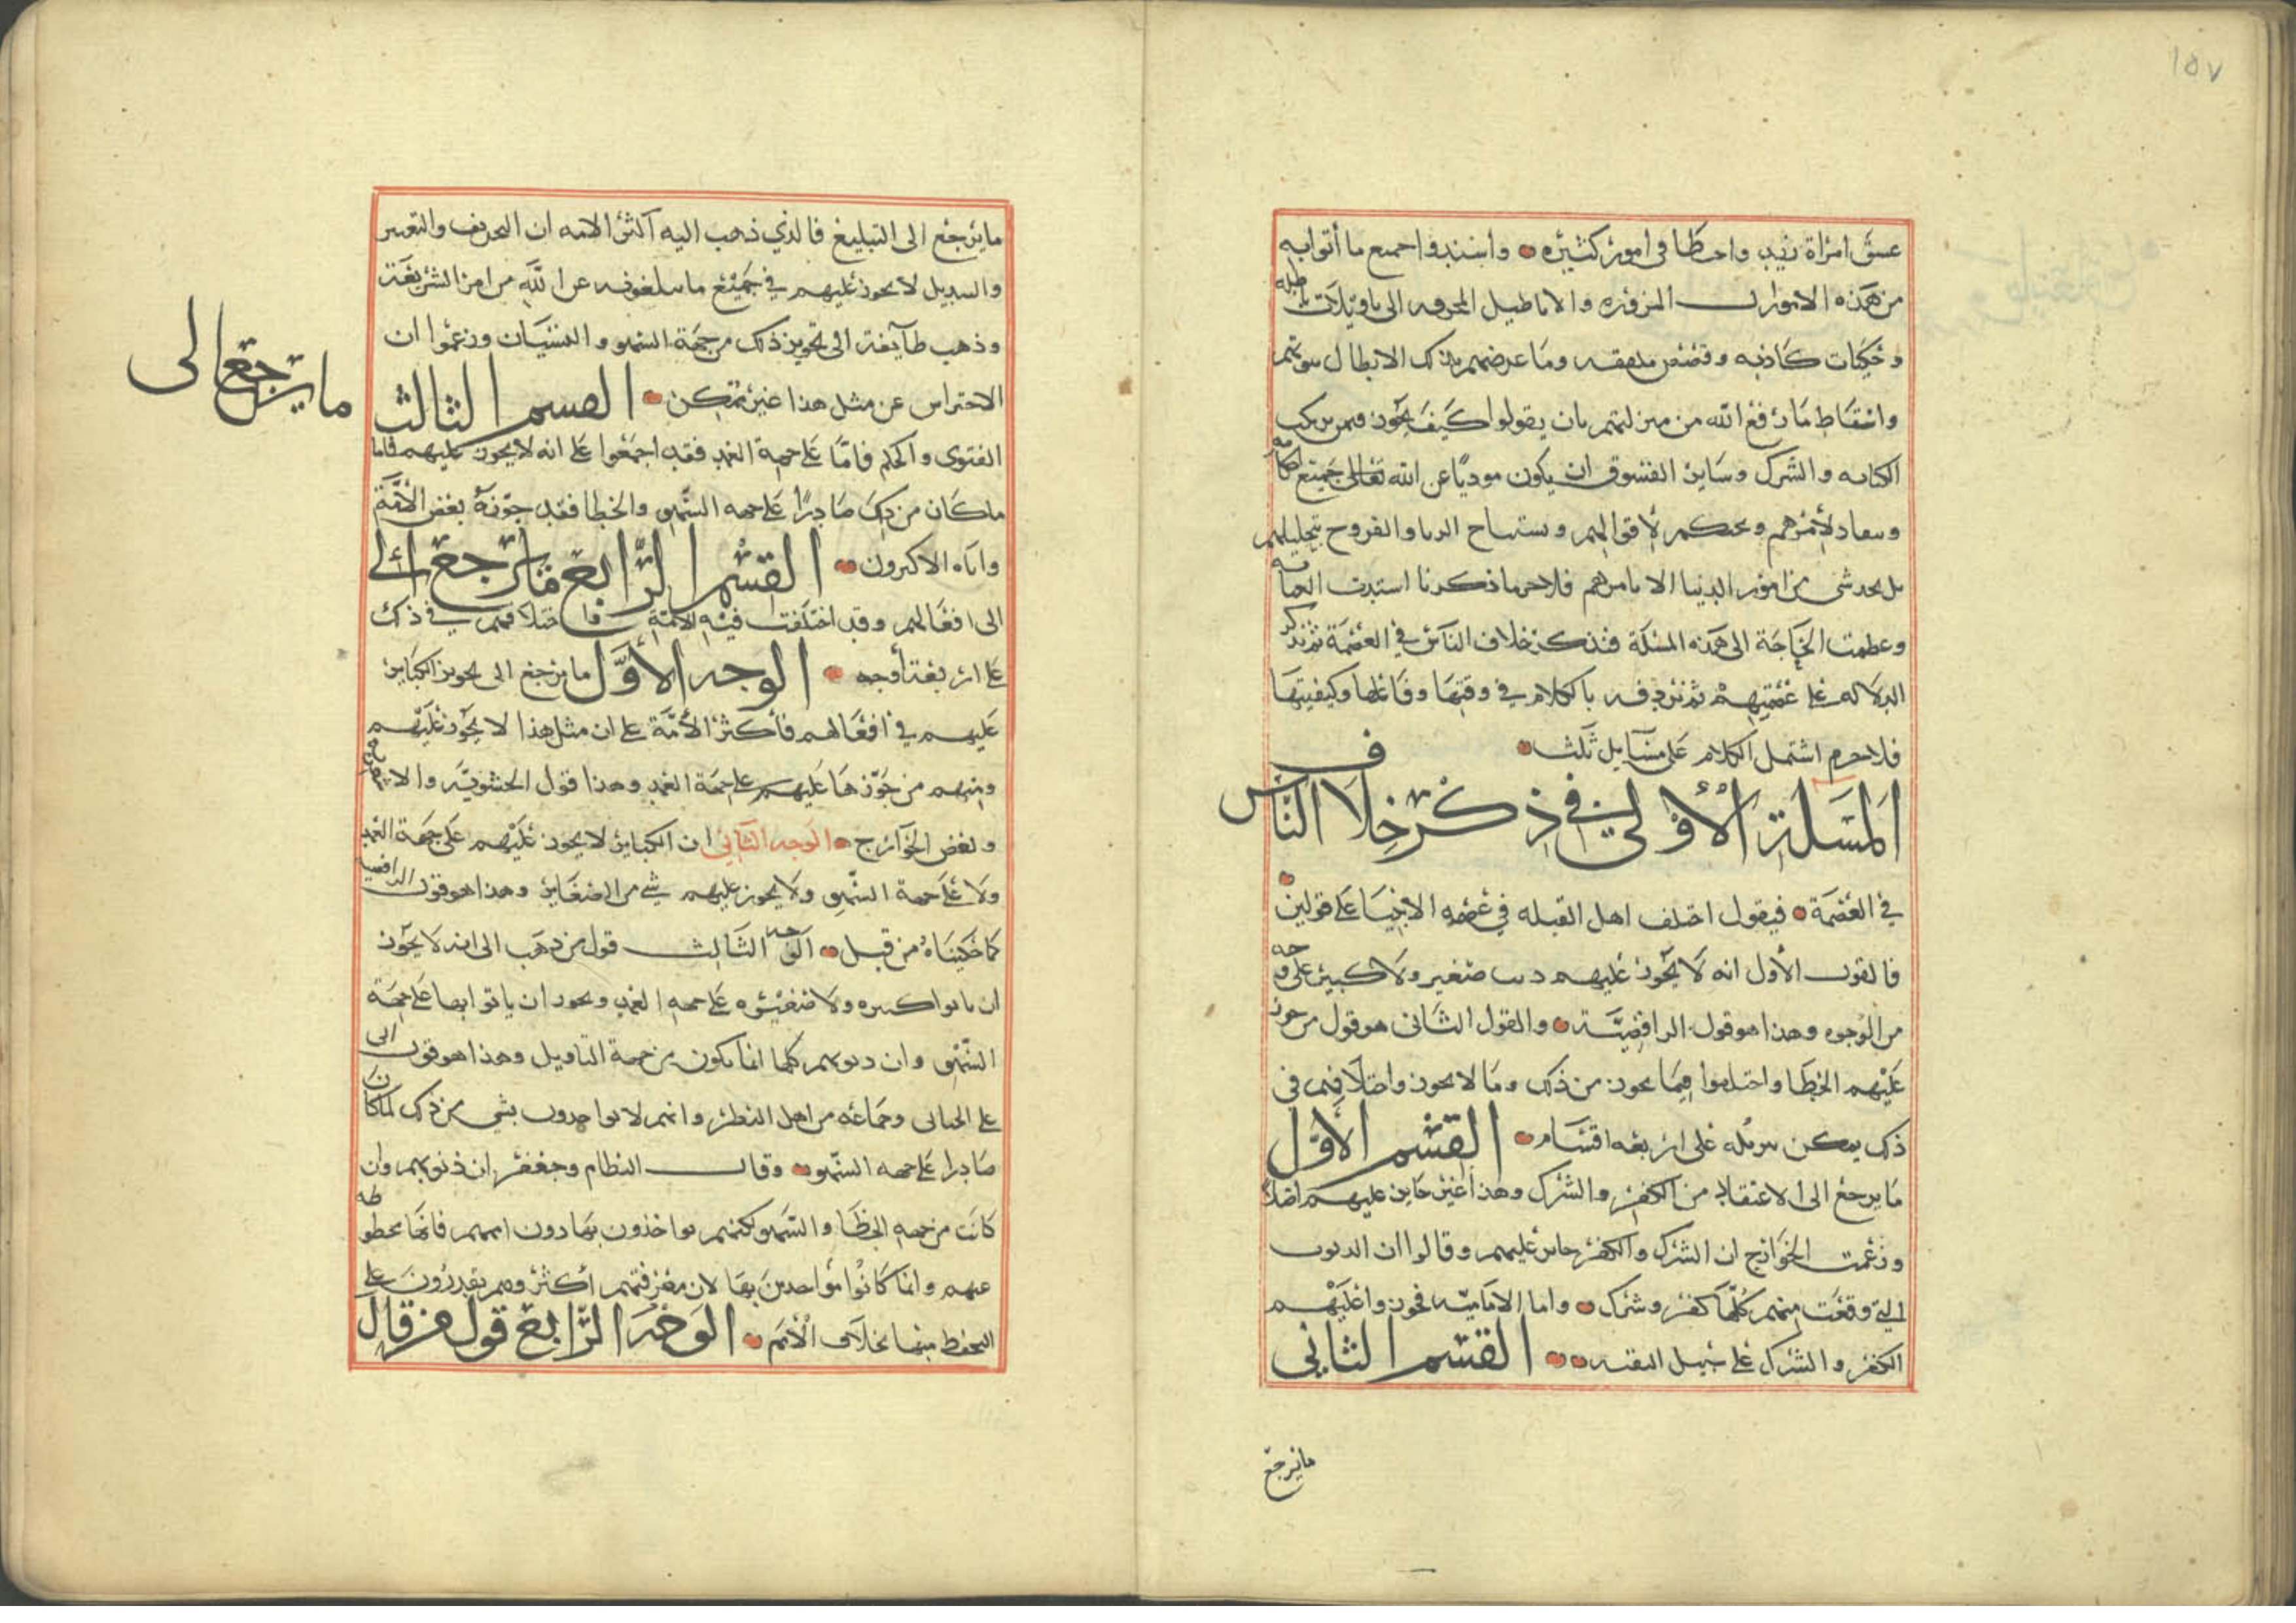 ١٥٧
عشق امرأة زيد واخطا في امور كثيره واسندوا جميع ما أتوا به
من هذه الابواب المزوره والاباطيل المحرفه الى تاويلات باطله
وحكيات كاذبه وقصص ملفقه وما غرضهم بذلك الا بطال نبوتهم
واسقاط ما رفع الله من منزلتهم بان يقولوا كيف يجوز فيمن يركب
الكبايه والشرك وساير الفسوق ان يكون موديًا عن الله تعالى جميع احكامه
وينقاد لأمرهم وبحكم لاقوالهم ويستباح الدما والفروج بتحليلهم
بل يحد شي من امور الدنيا الا بامرهم فلاجرم ما ذكرنا اشتدت العنايه
وعظمت الحاجة الى هذه المسلة فنذكر خلاف الناس في العصمة ثم نذكر
الدلاله على عصمتهم ثم نردفه بالكلام في وقتها وفاعلها وكيفيتها
فلاجرم اشتمل الكلام على مسايل ثلث
المسلة الأولى في ذكر خلاف الناس
في العصمة فيقول اختلف اهل القبله في عصمه الانبيا على قولين
فالقول الأول انه لا يجوز عليهم ذنب صغير ولا كبير على وجه
من الوجوه وهذا هو قول الرافضيّة والقول الثاني هو قول من جوز
عليهم الخطا واختلفوا فيما يجوز من ذلك وما لا يجوز واختلافهم في
ذلك يمكن تنزيله على اربعه اقسام القسم الأوّل
ما يرجع الى الاعتقاد من الكفر والشرك وهذا غير جايز عليهم اصلا
وزعمت الخوارج ان الشرك والكفر جايز عليهم وقالوا ان الذنوب
التي وقعت منهم كلها كفر وشرك واما الاماميه فجوزوا عليهم
الكفر والشرك على سبيل التقيه القسم الثاني
ما يرجع
ما يرجع الى التبليغ فالذي ذهب اليه أكثر الامه ان التحريف والتغيير
والتبديل لا يجوز عليهم في جميع ما يبلغونه عن الله من امر الشريعة
وذهب طآيفة الى تجويز ذلك من جهة السهو والنسيان وزعموا ان
الاحتراس عن مثل هذا غير ممكن القسم الثالث
ما يرجع الى
الفتوى والحكم فامّا على جهة العمد فقد اجمعوا على انه لا يجوز عليهم فاما
ما كان من ذلك صادرًا على جهه السّهو والخطا فقد جوّزهُ بعض الأمّة
واباه الاكثرون القسم الرّابع ما يرجع الى
الى افعالهم وقد اختلفت فيه الأمة فاختلافهم في ذلك
على اربعة أوجه الوجه الأوّل ما يرجع الى تجويز الكباير
عليهم في أفعالهم فأكثر الأمّة على ان مثل هذا لا يجوز عليهم
ومنهم من جوّزها عليهم على جهة العمد وهذا قول الحشويّه والا
وبعض الخوارج الوجه الثاني ان الكباير لا يجوز عليهم على جهة العمد
ولا على جهة السّهو ولا يجوز عليهم شي من الصغاير وهذا هو قول الرافضيه
كما حكيناهُ من قبل الوجه الثالث قول من ذهب الى انه لا يجوز
ان ياتوا كبيره ولا صغيره على جهه العمد ويجوز ان ياتوا بها على جهة
السّهو وان ذنوبهم كلها انما تكون من جهة التاويل وهذا هو قول ابى
على الجبائى وجماعه من اهل النظر وانهم لا يواخذون بشي من ذلك لما كان
صادرا على جهه السّهو وقال النظام وجعفر ان ذنوبهم وان
كانت من جهه الخطا والسهو لكنهم يواخذون بها دون اممهم فانها محطوطه
عنهم وانما كانوا مؤاخذين بها لان معرفتهم أكثر وهم يقدرون على
التحفظ منها بخلاف الأمم الوجه الرّابع قول من قال